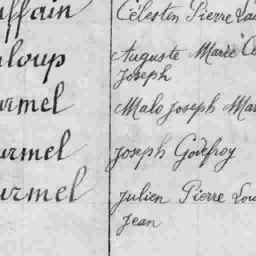 uffain Célestin Pierre Lou
uloup Auguste Marie C
Joseph
urmel Malo Joseph Mar
urmel Joseph Godefroy
urmel Julien Pierre Lou
Jean